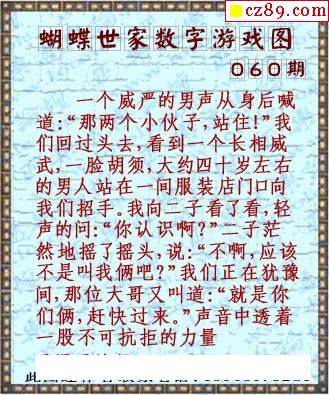 cz89.com
蝴蝶世家数字游戏图
060期
一个威严的男声从身后喊
道:“那两个小伙子,站住!”我
们回过头去,看到一个长相威
武,一脸胡须,大约四十岁左右
的男人站在一间服装店门口向
我们招手。我向二子看了看,轻
声的问:“你认识啊?”二子茫
然地摇了摇头,说:“不啊,应该
不是叫我俩吧?”我们正在犹豫
间,那位大哥又叫道:“就是你
们俩,赶快过来。”声音中透着
一股不可抗拒的力量